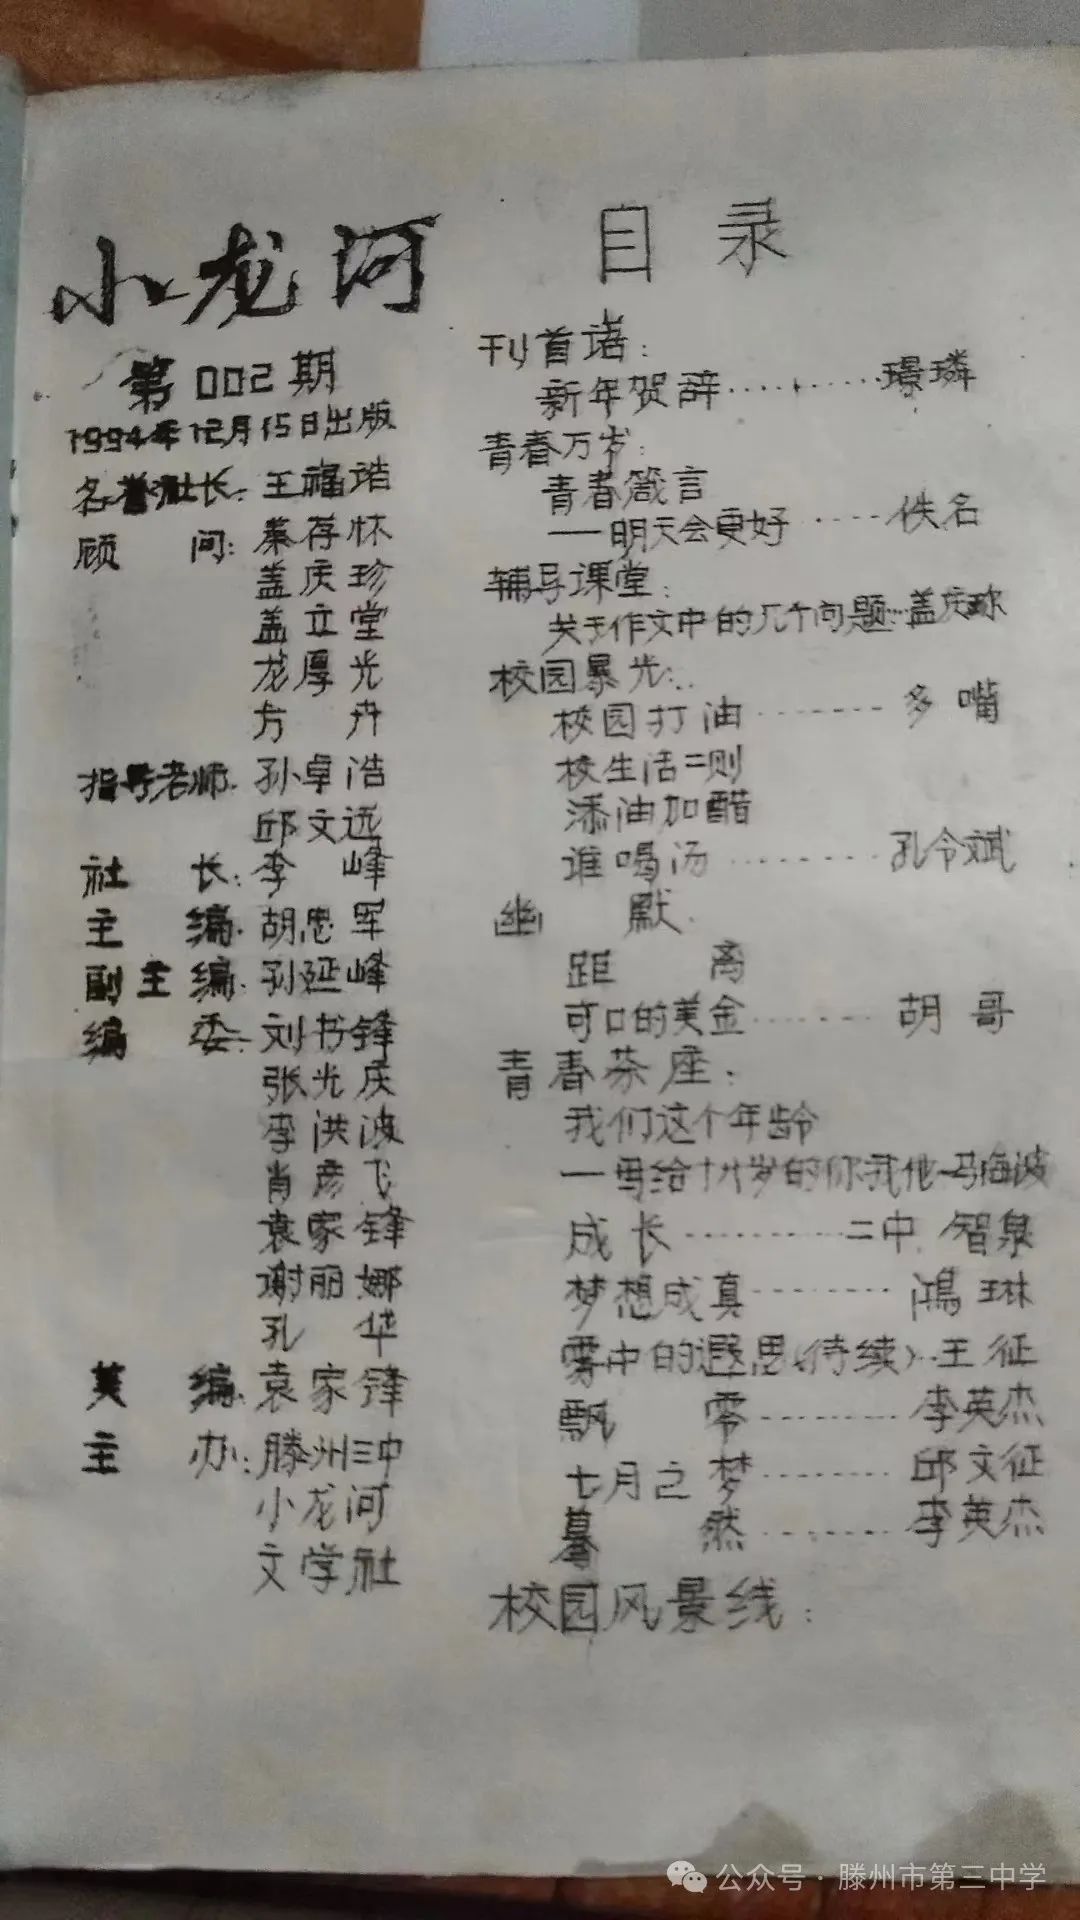 小龙河
第002期
1994年12月15日出版
名誉社长：王福诰
顾 问：秦存怀
盖庆珍
盖立堂
龙厚光
方 卉
指导老师：孙卓浩
邱文远
社 长：李 峰
主 编：胡思军
副主编：孙延峰
编 委：刘书锋
张光庆
李洪波
肖彦飞
袁家锋
谢丽娜
孔 华
美 编：袁家锋
主 办：滕州三中
小龙河
文学社
目录
刊首语：
新年贺辞………璟璘
青春万岁：
青春箴言
——明天会更好……佚名
辅导课堂：
关于作文中的几个问题…盖庆珍
校园暴光：
校园打油………多嘴
校生活二则
添油加醋
谁喝汤………孔令斌
幽 默
距 离
可口的美金………胡哥
青春茶座：
我们这个年龄
—写给十八岁的你我他—马海波
成长………二中 智泉
梦想成真………鸿琳
雾中的遐思（待续）…王征
飘 零………李英杰
七月之梦………邱文征
蓦 然………李英杰
校园风景线：
公众号·滕州市第三中学